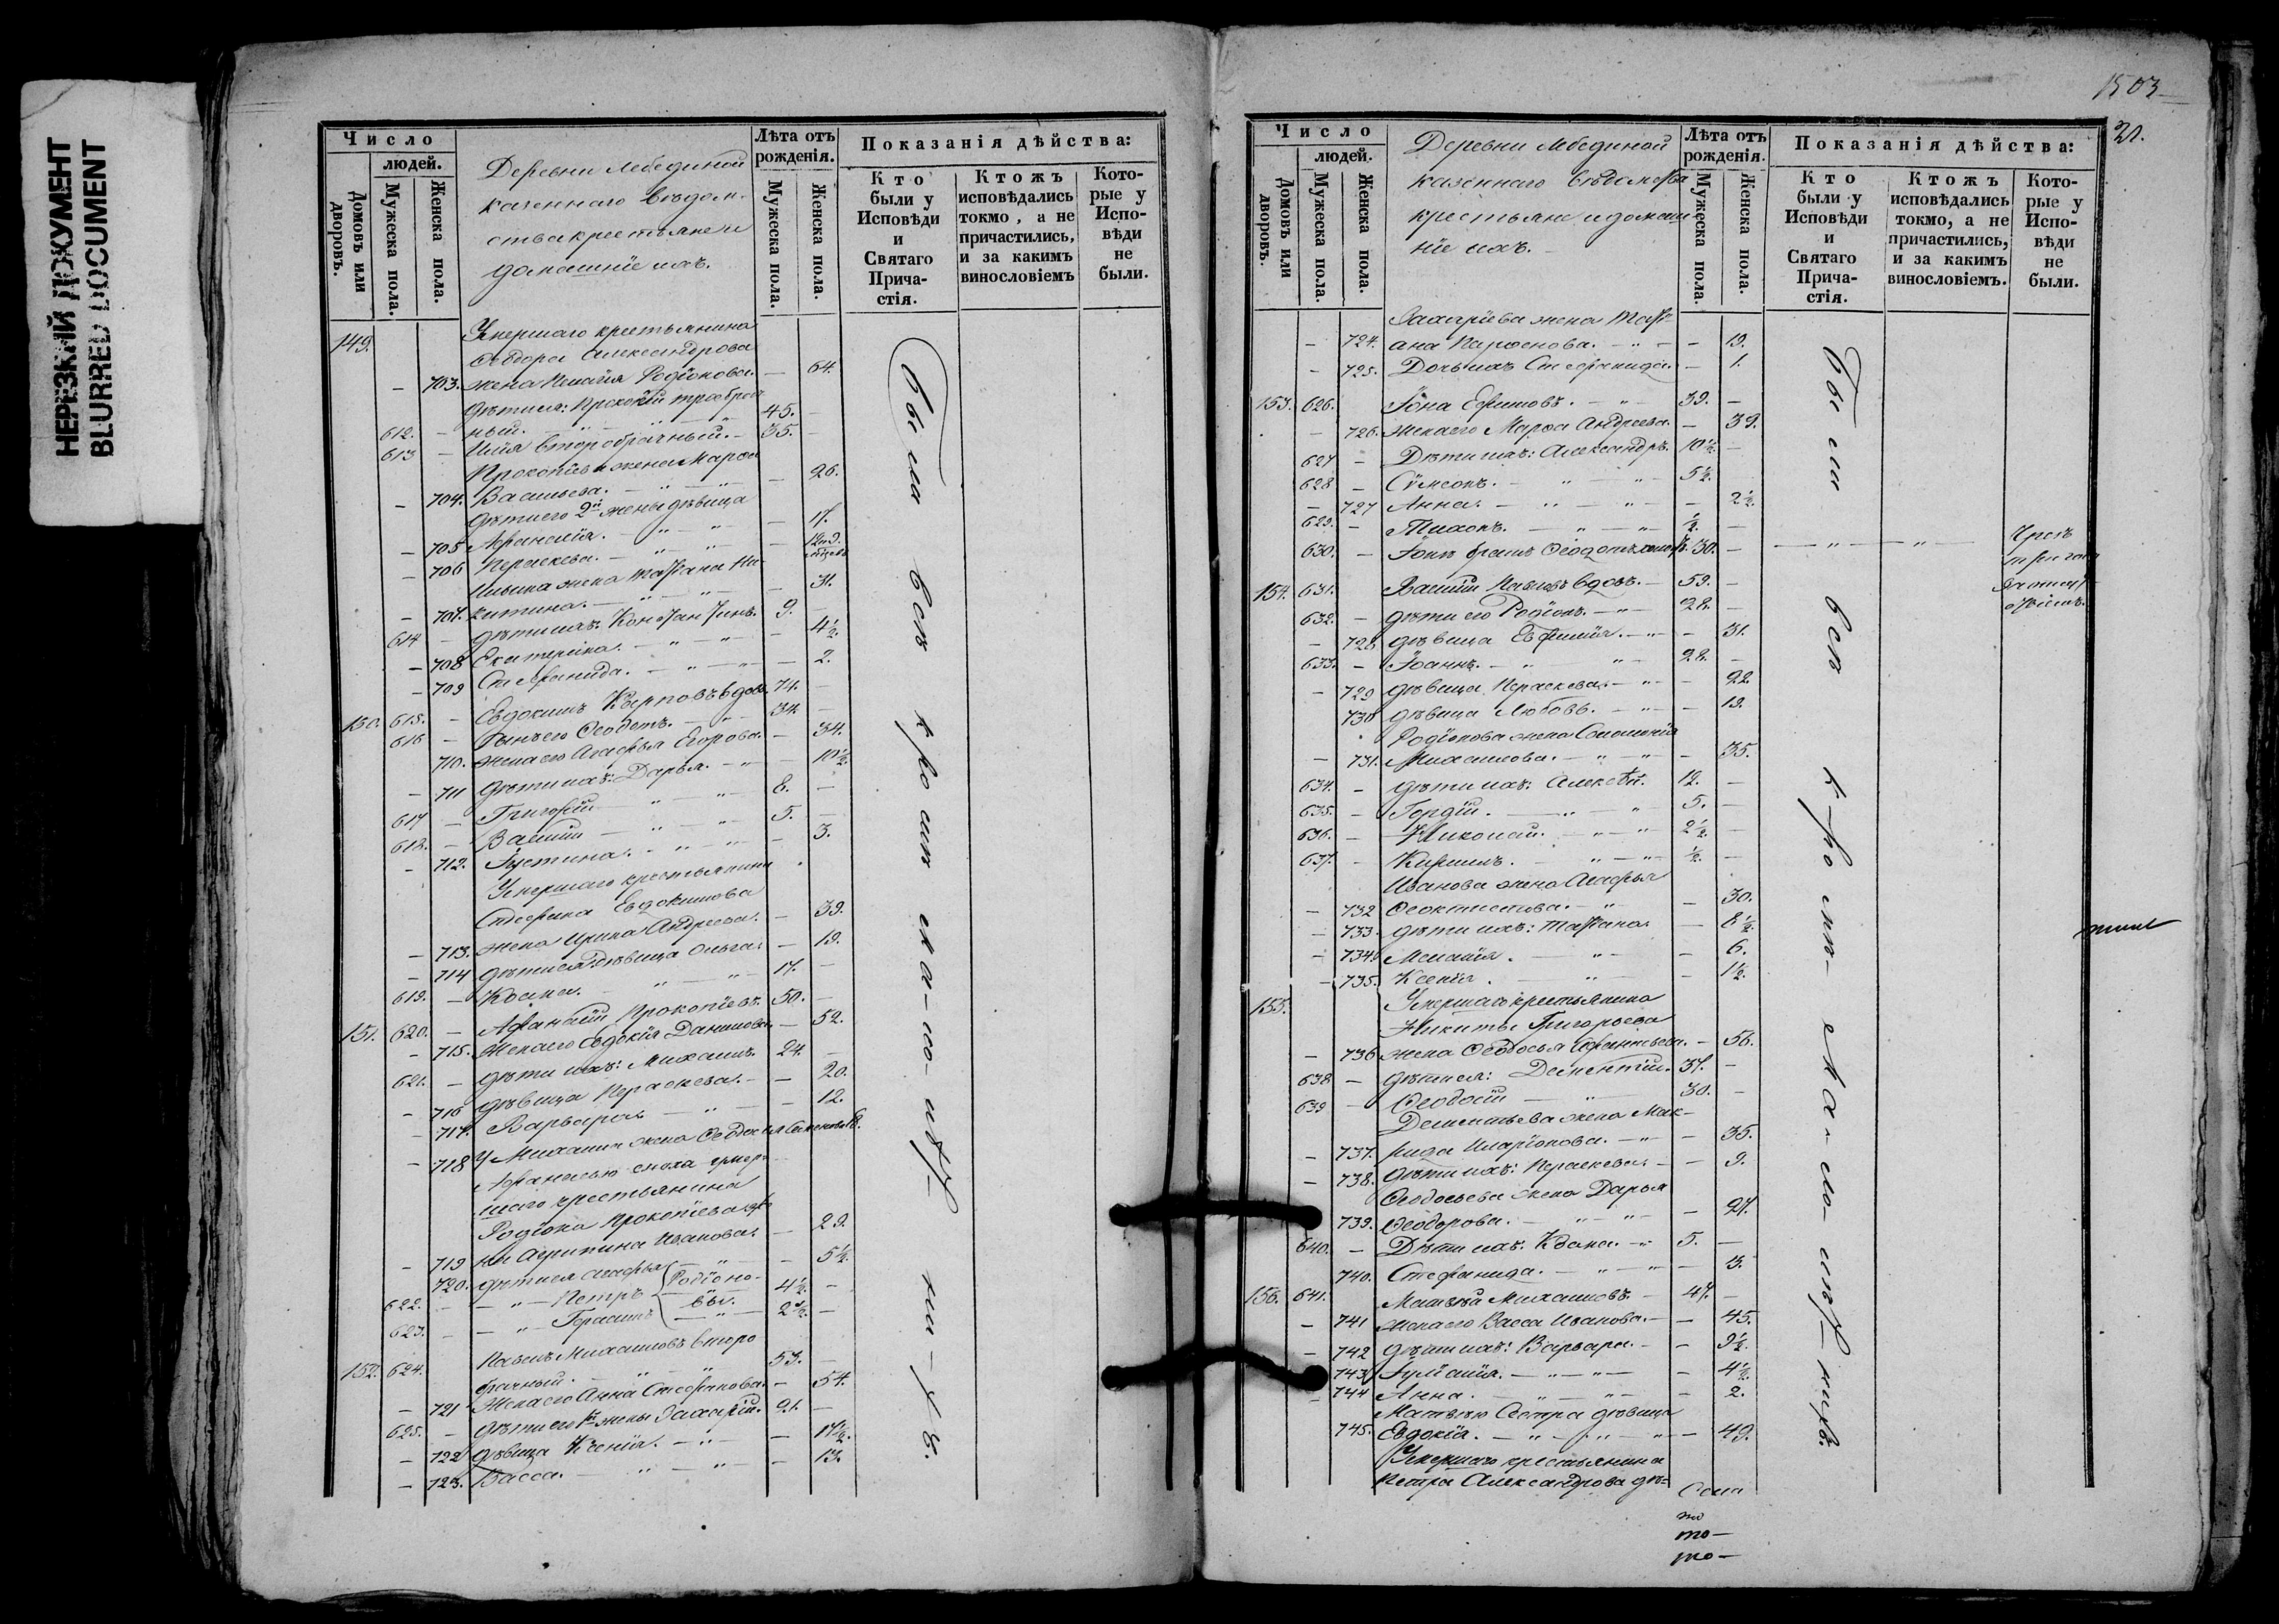 НЕРЕЗКИЙ ДОКУМЕНТ
BLURRED DOCUMENT
Число
людей.
Домовъ или дворовъ.
Мужеска пола.
Женска пола.
Деревни Лебединой
казеннаго ведом-
ства крестьяне и
домашніе ихъ.
Лѣта отъ рожденія.
Мужеска пола.
Женска пола.
Показанія дѣйства:
Кто были у Исповѣди и Святаго Прича-стія.
Ктожъ исповѣдались токмо, а не причастились, и за какимъ винословіемъ
Кото-рые у Испо-вѣди не были.
149. Умершаго крестьянина
Ѳеодора Александрова
— 703. жена Пелагія Родіонова. — 64.
дѣти ея: Прокопій троебрач
612. — ный. 45. —
613 — Илія второбрачный. — 35. —
Прокопіева жена Марѳа
— 704. Васильева. — 26.
дѣти его 2й жены дѣвица
— 705 — 17.
— 706 Параскева. —
Ильина жена Татіана Ни-
— 707. китина. — 31.
614 — дѣти ихъ: Константинъ. 9. —
— 708 Екатерина. — 4½.
— 709 Стефанида. — 2.
150. 615. — Евдокимъ Карповъ вдов. 74. —
616 — Сынъ его Ѳеодотъ. — 34. —
710. жена его Агафья Егорова. — 34.
— 711 дѣти ихъ: Дарья. — 10½.
617 — Григорій 8. —
618. — Василій 5. —
— 712. Іустина. — 3.
Умершаго крестьянина
Стефана Евдокимова
— 713. жена Ирина Андреева. — 39.
— 714 дѣти ея: дѣвица Ольга. — 19.
619. — 17. —
151. 620. — Афанасій Прокопіевъ. 50. —
— 715. Жена его Евдокія Данилова. — 52.
621. — дѣти ихъ: Михаилъ. 24. —
— 716 дѣвица Параскева. — 20.
— 717. Варвара — 12.
— 718 У Михаила жена Ѳеодосія Семенова 18.
Афанасью сноха умер-
шаго крестьянина
Родіона Прокопіева
— 719 Агрипина Иванова. — 29.
720. дѣти ея Агафья — 5½.
622. — Петръ 4½. —
Родіоно-
вы.
623. — Герасимъ 2½. —
152. 624. Павелъ Михаиловъ второ
брачный. 53. —
— 721 Жена его Анна Стефанова. — 54.
625. — дѣти его 1й жены Захарій. 21. —
— 722 дѣвица Ксенія. — 17½.
— 723. Васса. — 13.
были всѣ кромѣ мало-лѣт-нихъ.
1503
21.
Число
людей.
Домовъ или дворовъ.
Мужеска пола.
Женска пола.
Деревни Лебединой
казеннаго ведомства
крестьяне и домаш-
ніе ихъ.
Лѣта отъ рожденія.
Мужеска пола.
Женска пола.
Показанія дѣйства:
Кто были у Исповѣди и Святаго Прича-стія.
Ктожъ исповѣдались токмо, а не причастились, и за какимъ винословіемъ.
Кото-рые у Испо-вѣди не были.
Захаріева жена Тать-
— 724. ана Парѳенова. — 19.
— 725. Дочь ихъ Стефанида. — 1.
153. 626. Іона Ефимовъ. 39. —
— 726. жена его Марѳа Андреева. — 39.
627 — Дѣти ихъ: Александръ. 10½ —
628 — Сѵмеонъ. 5½.
— 727 Анна. — 2½.
629. — Тихонъ. ½. —
630. — Іонѣ братъ Ѳеодотъ 30. —
154. 631. Василій Павловъ вдовъ. — 59. —
632. — дѣти его Родіонъ. 28. —
— 728 дѣвица Евфимія. — 31.
633. — Іоаннъ. 28. —
— 729 дѣвица Параскева. — 22
730 дѣвица Любовь. — 19.
Родіонова жена Соломонія
— 731. Михаилова. — 35.
634. — дѣти ихъ: Алексѣй. 12. —
635. — Гордій. 5. —
636. — Николай. 2½. —
637. — Кириллъ. ½. —
Иванова жена Агафья
— 732 Ѳеоктистова. — 30.
— 733. дѣти ихъ: Татіана — 8½.
— 734. Меланія. — 6.
— 735. Ксенія. — 1½.
155. Умершаго крестьянина
Никиты Григорьева
— 736 жена Ѳеодосья — 56.
638 — дѣти ея: Дементій. 37. —
639 — Ѳеодосій 30. —
Дементьева жена Мак-
— 737. рида Иларіонова. — 35.
— 738. Дѣти ихъ: Параскева — 9.
Ѳеодосьева жена Дарья
739. Ѳеодорова. — 27.
640. — Дѣти ихъ: 5. —
740. Стефанида. — 3.
156. 641. Матвѣй Михаиловъ. — 47. —
— 741 жена его Васса Иванова. — 45.
— 742 дѣти ихъ: Варвара. — 9½.
743 Іуліанія. — 4½.
744 Анна. — 2.
Матвѣю Сестра дѣвица
745. Евдокія. — 49.
Умершаго крестьянина
Петра Александрова дѣ-
были всѣ кромѣ мало-лѣтнихъ.
Села
но
то—
то—